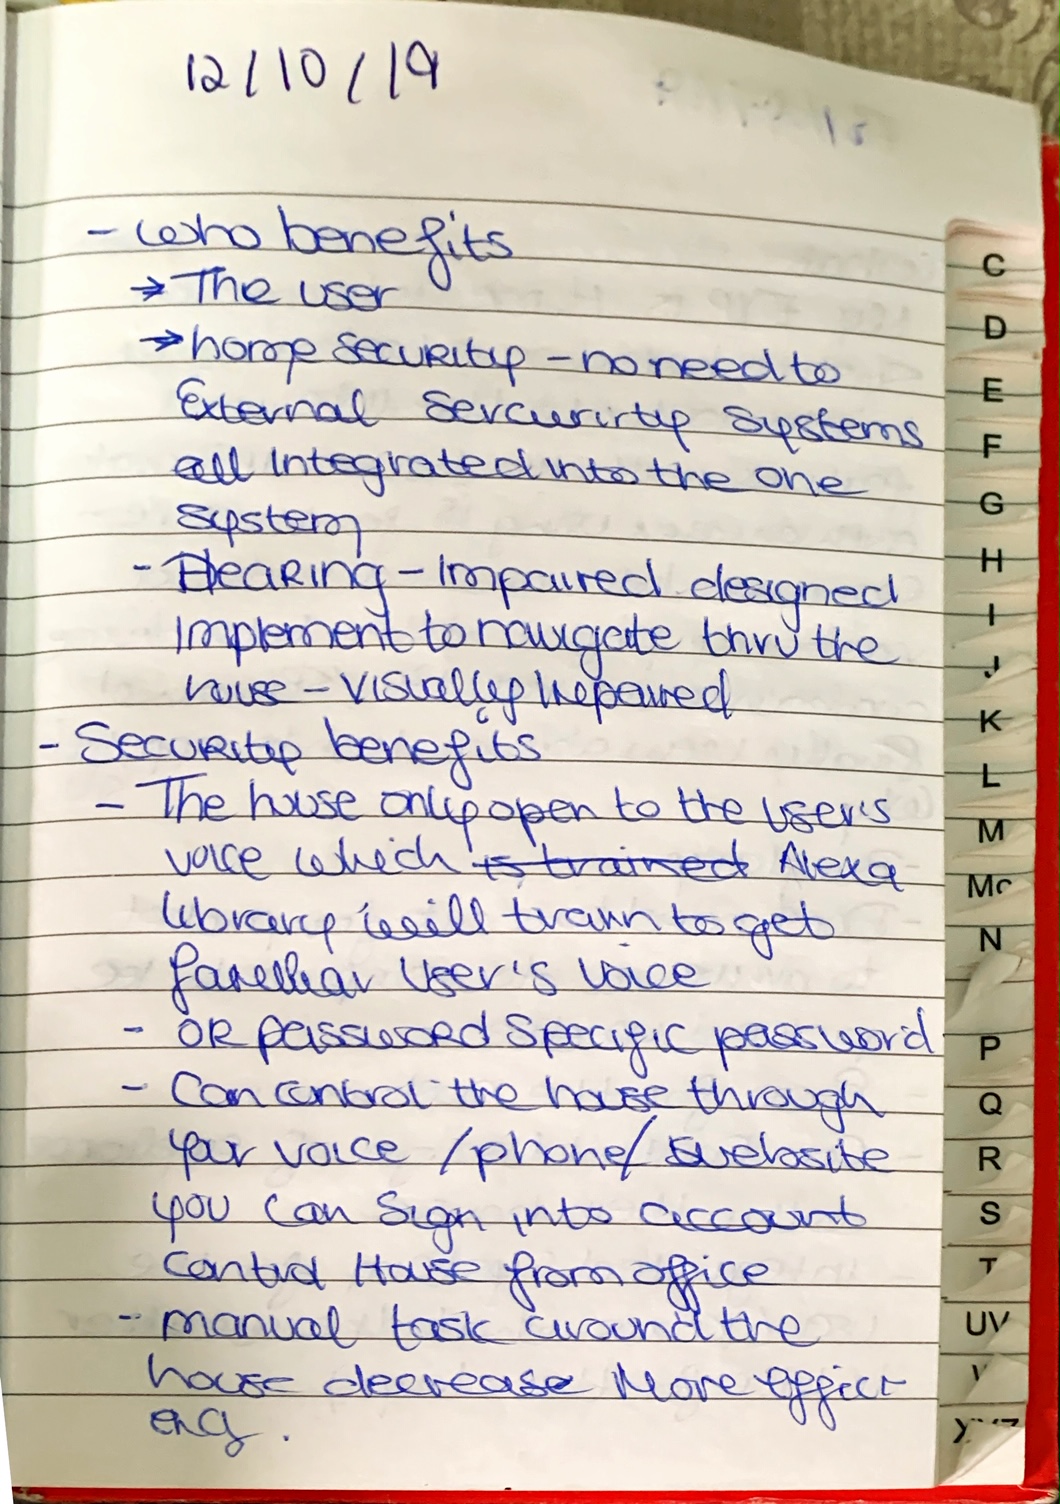 12/10/19
- who benefits
→ The user
→ home security - no need to
External Sercurirty Systems
all Integrated into the one
system
- Hearing - Impaired designed
Implement to navigate thru the
house - visually Impaired
- Security benefits
- The house only open to the user's
voice which is trained Alexa
library will train to get
familiar User's Voice
- OR password Specific password
- Can control the house through
your voice /phone/ website
you can Sign into account
Control House from office
- manual task around the
house decrease More effict
ency.
C
D
E
F
G
H
I
J
K
L
M
Mc
N
P
Q
R
S
T
UV
XYZ